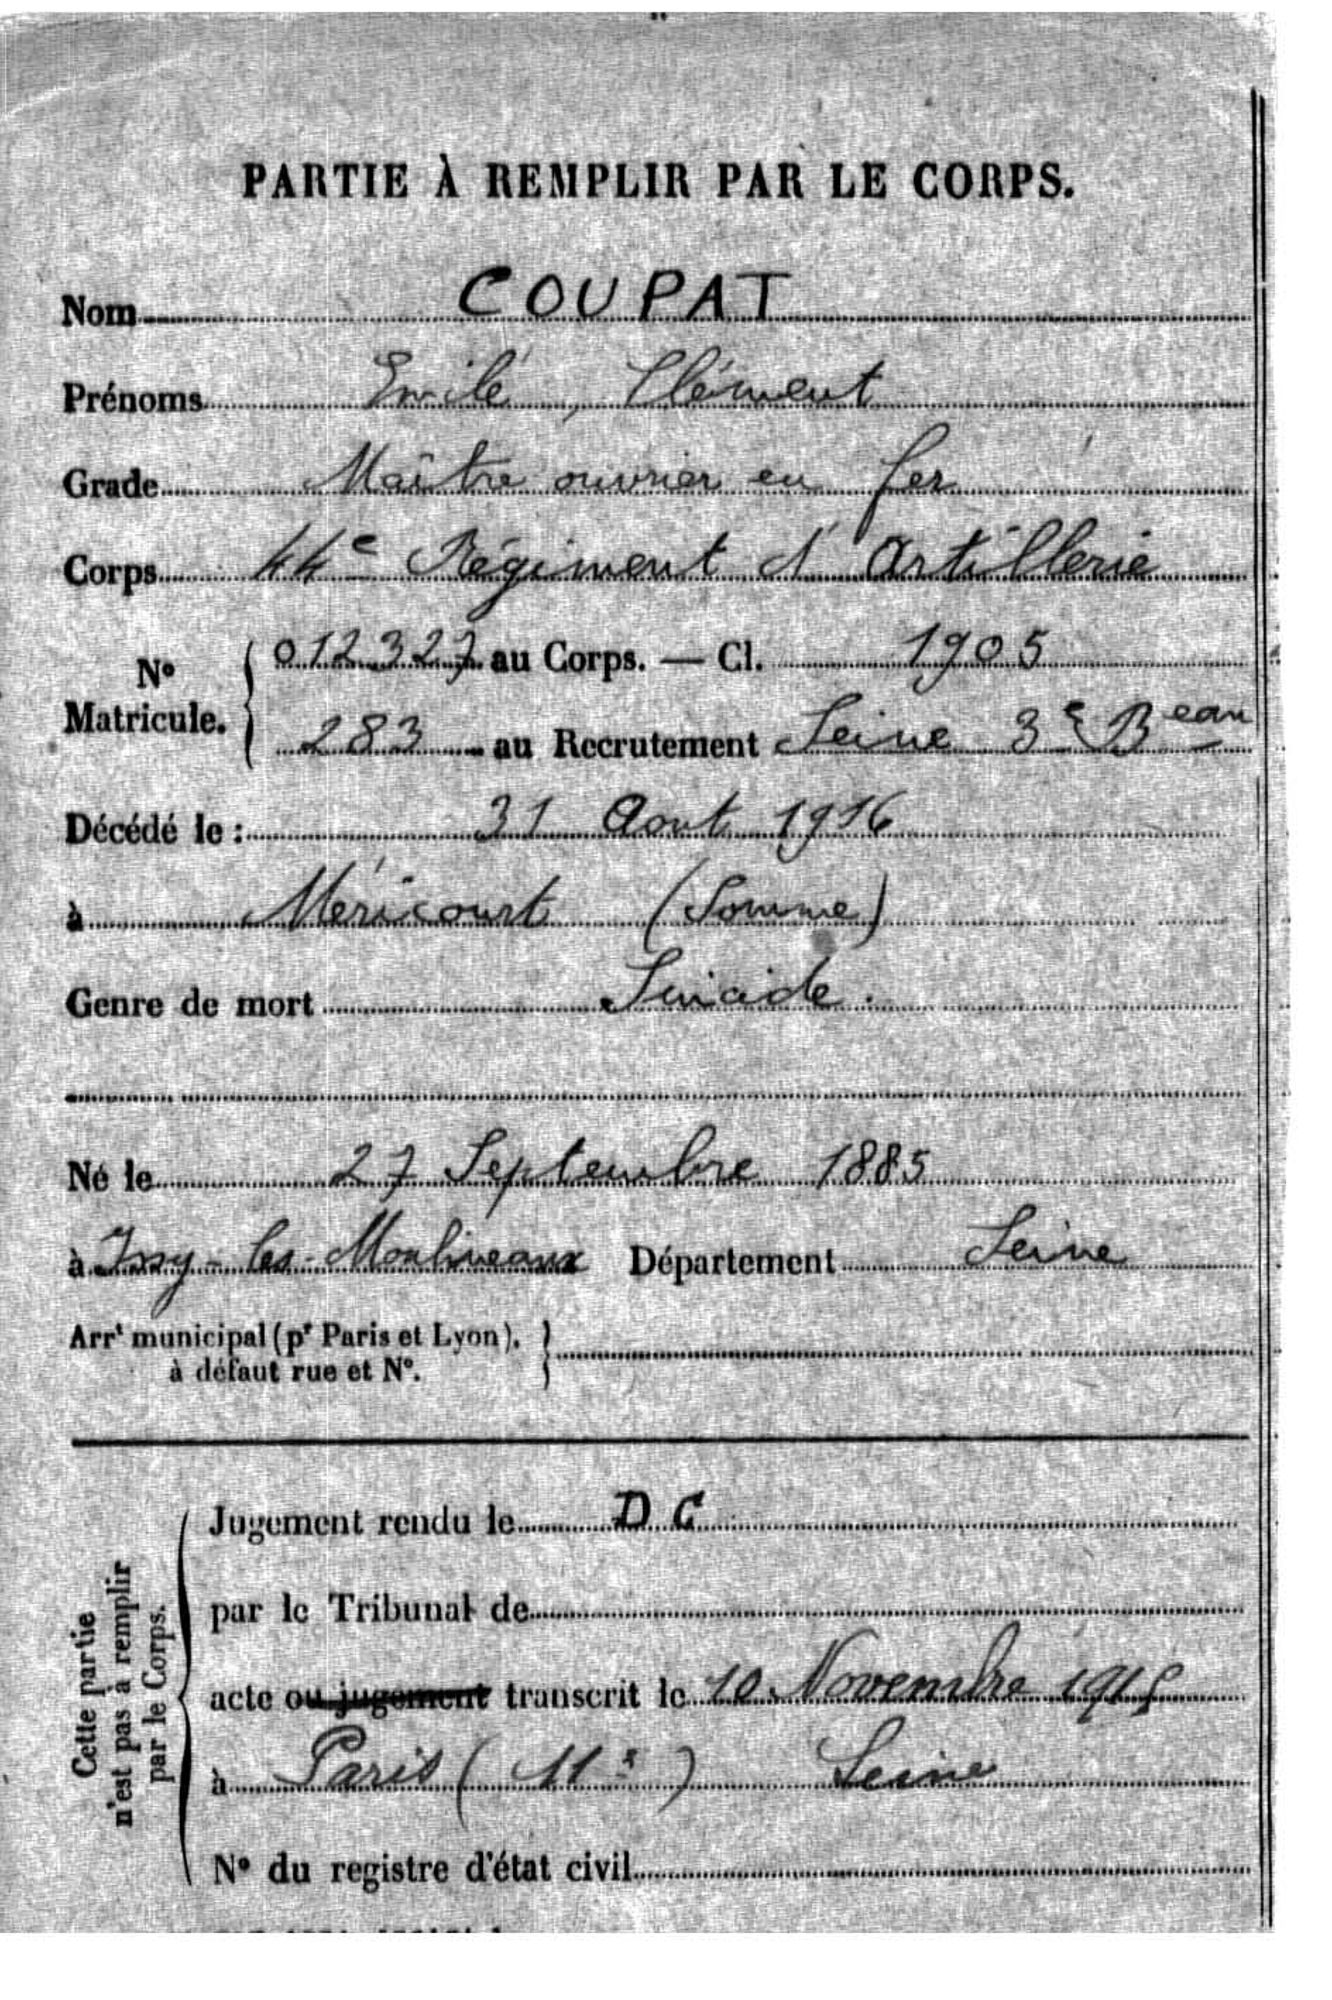 PARTIE À REMPLIR PAR LE CORPS.
Nom COUPAT
Prénoms Emile, Clément
Grade Maître ouvrier en fer
Corps 44e Régiment d'Artillerie
No Matricule. { 012327 au Corps. — Cl. 1905
283 au Recrutement Seine 3e Beau
Décédé le : 31 Aout 1916
à Méricourt (Somme)
Genre de mort Suicide.
Né le 27 Septembre 1885
à Issy-les-Moulineaux Département Seine
Arrt municipal (pr Paris et Lyon). }
à défaut rue et No.
Cette partie
n'est pas à remplir
par le Corps.
Jugement rendu le DC
par le Tribunal de
acte ou jugement transcrit le 10 Novembre
à Paris (11e) Seine
No du registre d'état civil